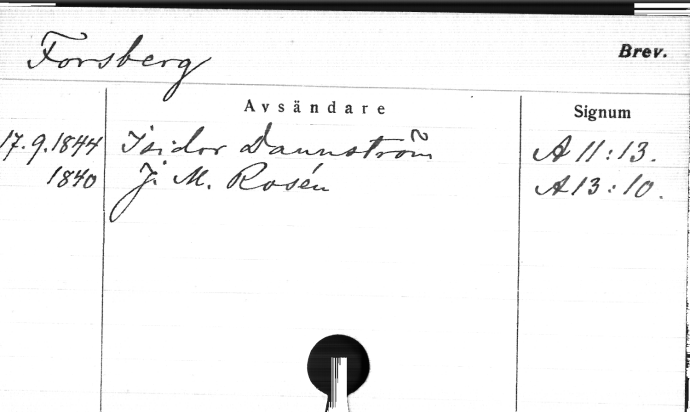 Forsberg Brev.
Avsändare Signum
17.9.1844 Isidor Dannström A 11:13.
1840 J. M. Rosén A 13:10.